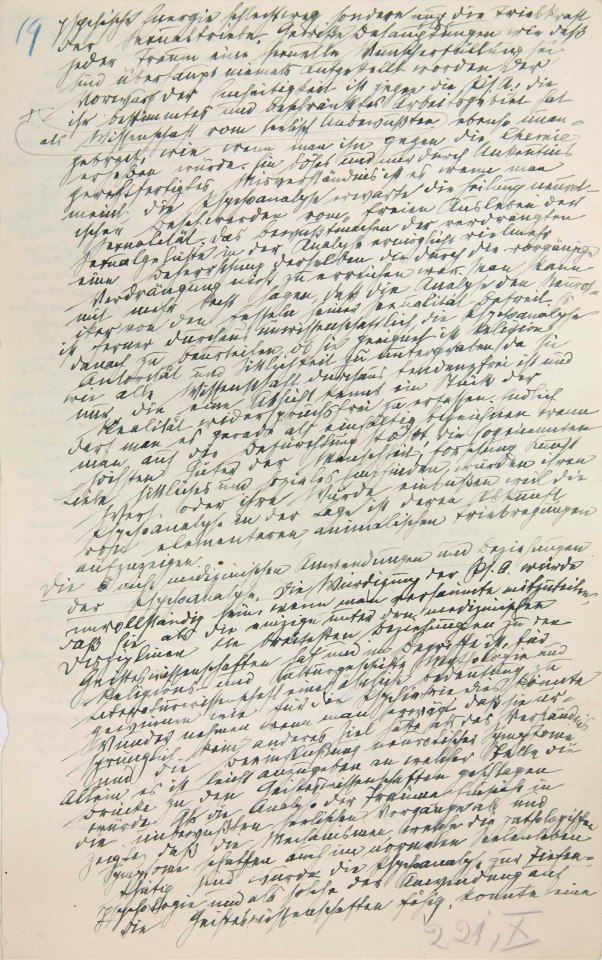 19
psychische Energie schlechtweg sondern nur die Triebkraft
der Sexualtriebe. Gewisse Behauptungen wie daß
jeder Traum eine sexuelle Wunscherfüllung sei
sind überhaupt niemals aufgestellt worden. Der
Vorwurf der Einseitigkeit ist gegen die PsA., die
als Wissenschaft vom seelisch Unbewußten
ihr bestimmtes und beschränktes Arbeitsgebiet hat
ebenso unan-
gebracht, wie wenn man ihn gegen die Chemie
erheben würde. Ein böses und nur durch Unkenntnis
gerechtfertigtes Mißverständnis ist es wenn man
meint, die Psychoanalyse erwarte die Heilung neurot-
ischer Beschwerden vom freien Ausleben der
Sexualität. Das Bewußtmachen der verdrängten
Sexualgelüste in der Analyse ermöglicht vielmehr
eine Beherrschung derselben die durch die vorgängige
Verdrängung nicht zu erreichen war. Man kann
mit mehr Recht sagen, daß die Analyse den Neurot-
iker von den Fesseln seiner Sexualität befreit. Es
ist ferner durchaus unwissenschaftlich die Psychoanalyse
danach zu beurteilen, ob sie geeignet ist Religion
Autorität und Sittlichkeit zu untergraben, da sie
wie alle Wissenschaft durchaus tendenzfrei ist und
nur die eine Absicht kennt ein Stück der
Realität widerspruchsfrei zu erfassen. Endlich
darf man es gerade als einfältig bezeichnen wenn
man auf die Befürchtung stößt, die sogenannten
höchsten Güter der Menschheit, Forschung Kunst
Liebe, sittliches und soziales Empfinden würden ihren
Wert oder ihre Würde einbüßen weil die
Psychoanalyse in der Lage ist deren Abkunft
von elementaren animalischen Triebregungen
aufzuzeigen.
Die nicht medizinischen Anwendungen und Beziehungen
der Psychoanalyse. Die Würdigung der Ps.A. würde
unvollständig sein, wenn man versäumte mitzuteilen,
daß sie als die einzige unter den medizinischen
Disziplinen die breitesten Beziehungen zu den
Geisteswissenschaften hat und im Begriffe ist, für
Religions- und Kulturgeschichte Mythologie und
Literaturwissenschaft eine ähnliche Bedeutung zu
gewinnen wie für die Psychiatrie. Dies könnte
Wunder nehmen wenn man erwägt daß sie ur-
sprünglich kein anderes Ziel hatte als das Verständnis
und die Beeinflußung neurotischer Symptome
Allein es ist leicht anzugeben an welcher Stelle die
Brücke zu den Geisteswissenschaften geschlagen
wurde. Als die Analyse der Träume Einsicht in
die unbewußten seelischen Vorgänge gab und
zeigte, daß die Mechanismen welche die pathologischen
Symptome schaffen auch im normalen Seelenleben
thätig sind wurde die Psychoanalyse zur Tiefen-
psychologie und als solche der Anwendung auf
die Geisteswissenschaften fähig, konnte eine
221, X